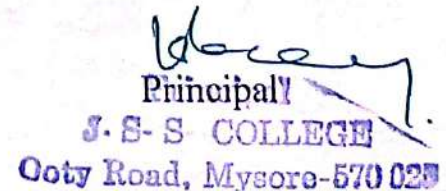 Principal
J. S- S COLLEGE
Ooty Road, Mysore-570 025